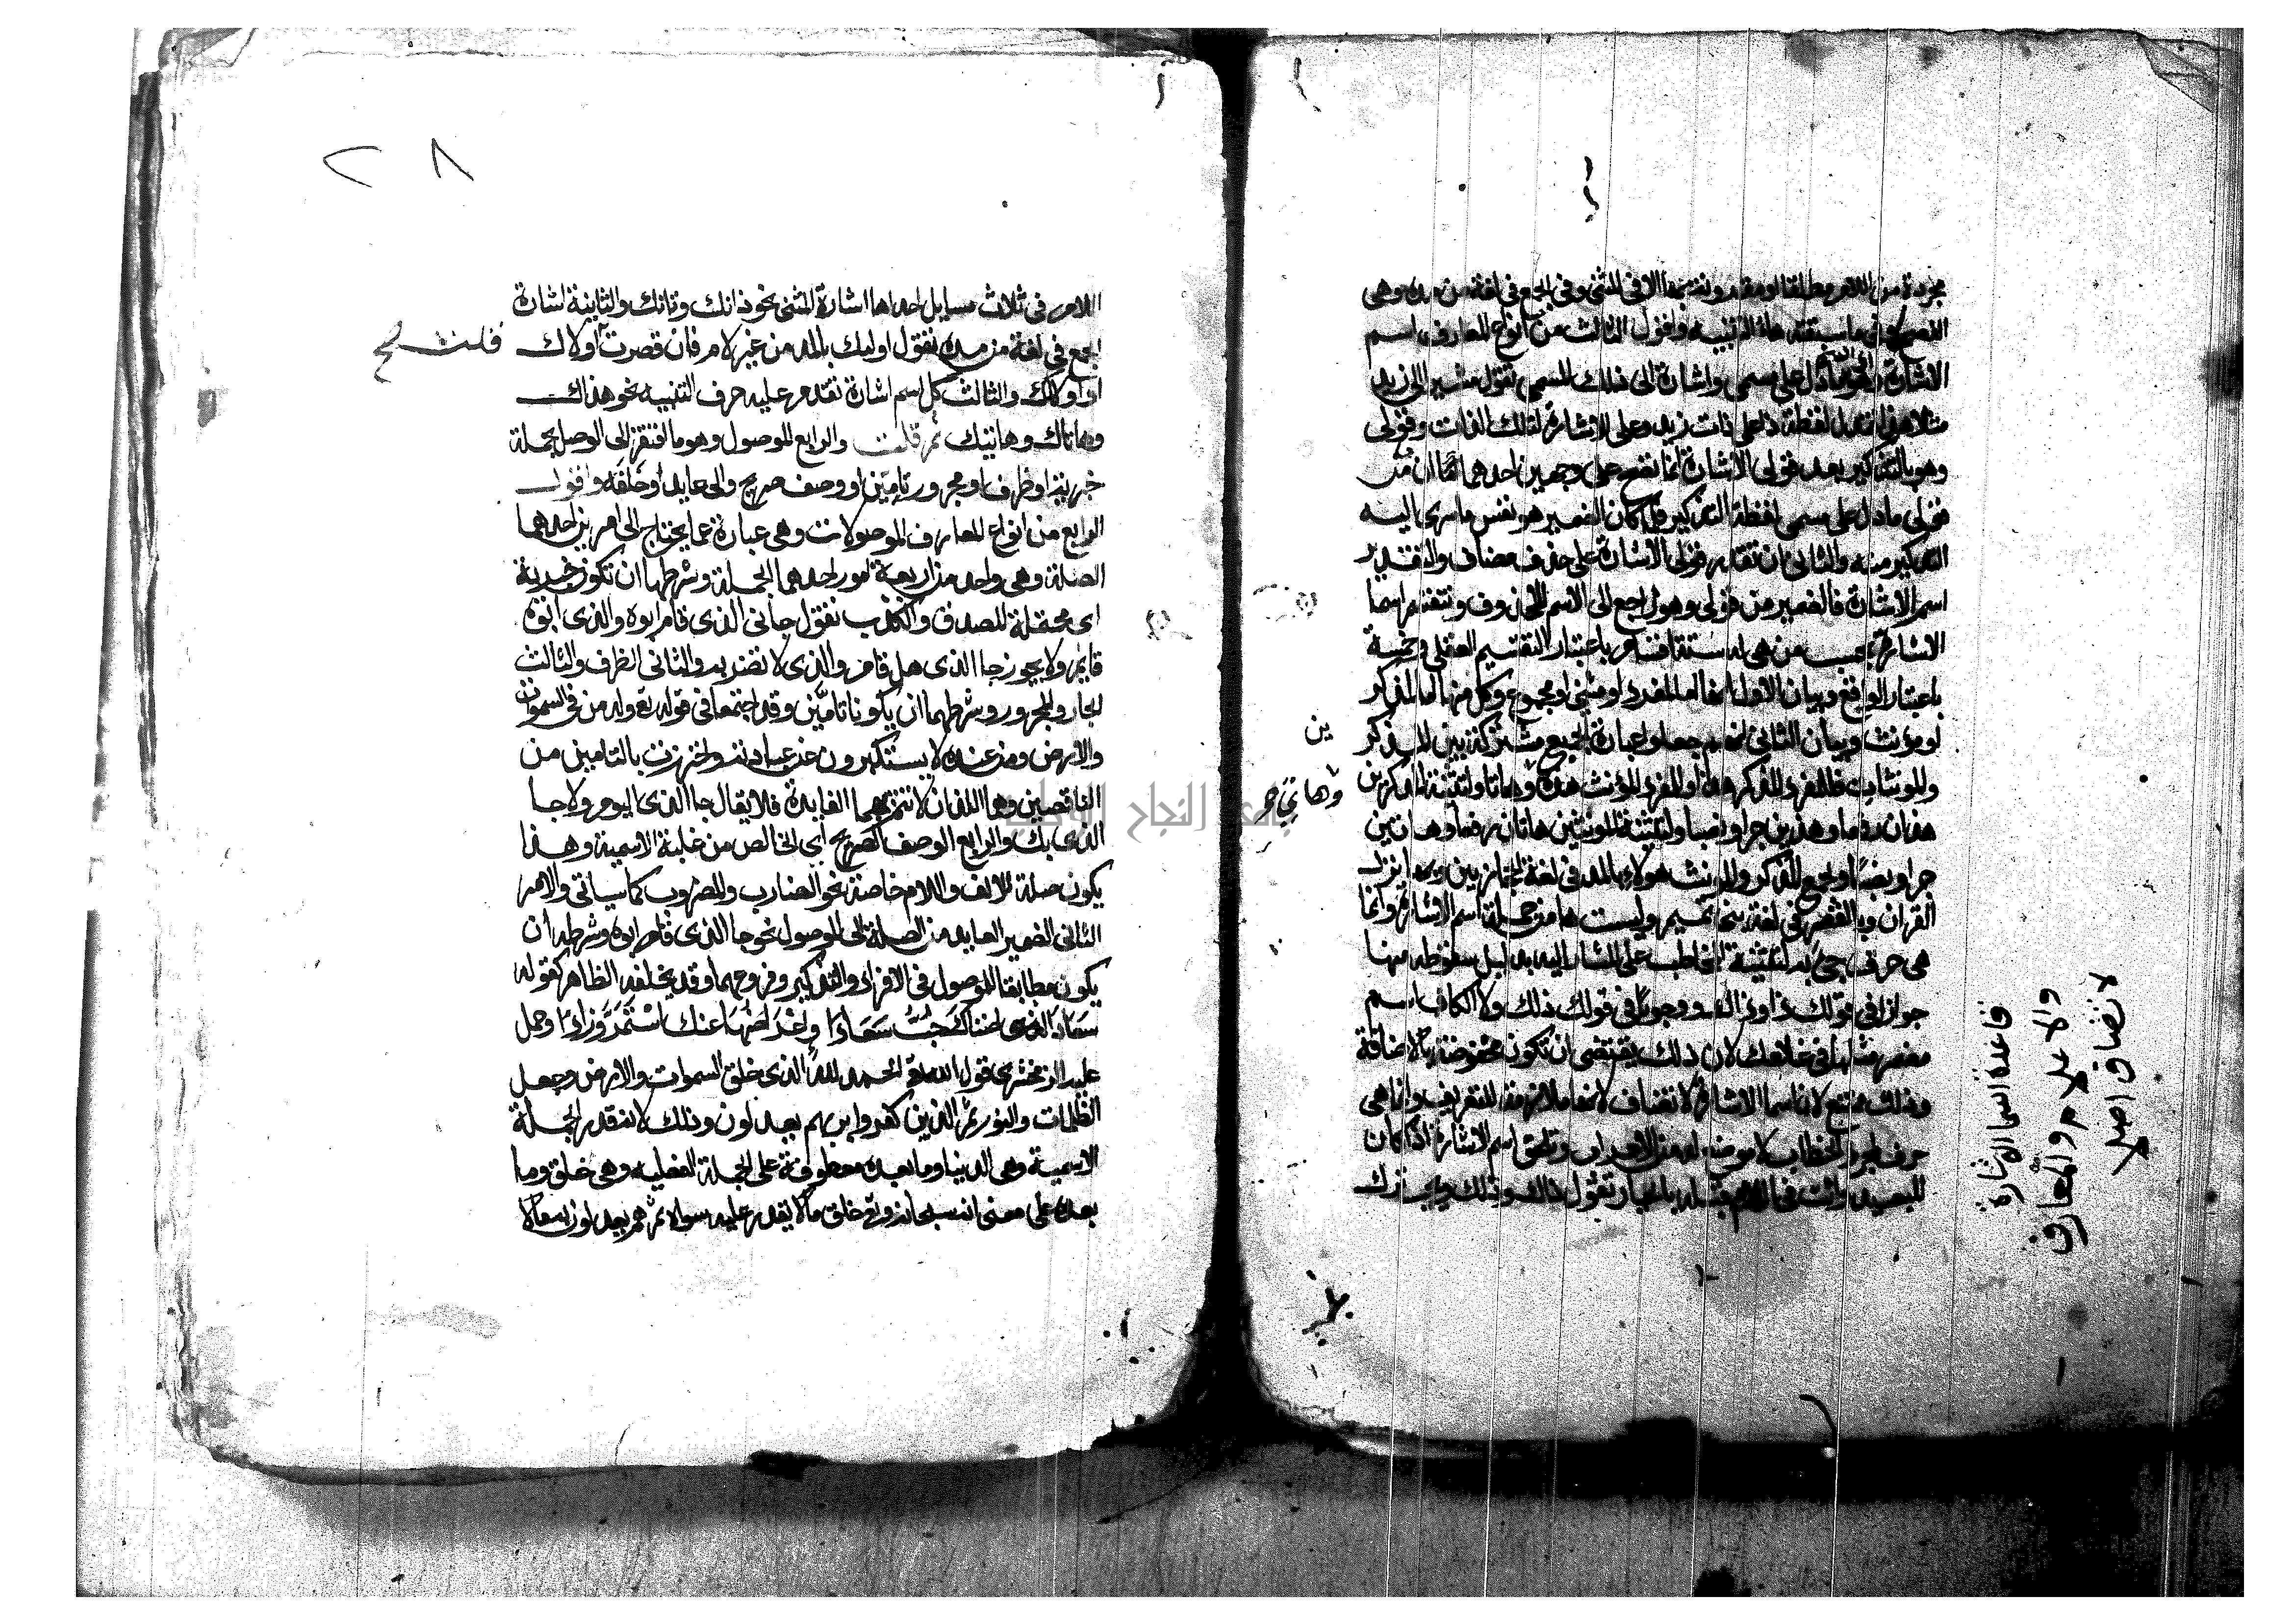 مجردة من اللام مطلقا او مقرونة بها الا في المثنى وفي الجمع في لغة من مده وهي
الفصحى وفيما سبقته هاء التنبيه واقول الثالث من انواع المعارف اسم
الاشارة وهو ما دل على مسمى واشارة الى ذلك المسمى تقول مشيرا الى زيد
مثلا هذا فتدل لفظة ذا على ذات زيد وعلى الاشارة لتلك الذات وقولي
وهو بالتذكير بعد قولي الاشارة انما يصح على وجهين احدهما
قولي ما دل على مسمى لفظة التذكير فلما كان الضمير هو نفس ما سرى اليه
التذكير منه والثاني ان تقدر قولي الاشارة على حذف مضاف والتقدير
اسم الاشارة فالضمير من قولي وهو راجع الى الاسم المحذوف وتنقسم اسما
الاشارة بحسب من هي له ستة اقسام باعتبار التقسيم العقلي وخمسة
باعتبار الواقع وبيان الاول انها اما لمفرد او مثنى او مجموع وكل منها اما لمذكر
او مونث وبيان الثاني انهم جعلوا عبارة الجمع مشتركة بين المذكرين
والمونثات فللمفرد المذكر هذا وللمفرد المؤنث هذه وهاتي وهاتا ولتثنية المذكرين
هذان رفعا وهذين جرا ونصبا ولتثنية المونثين هاتان رفعا وهاتين
جرا ونصبا ولجمع المذكر والمونث هولاء بالمد في لغة الحجازيين وبها نزل
القران وبالقصر في لغة بني تميم وليست ها من جملة اسم الاشارة وانما
هي حرف جيء به لتنبيه المخاطب على المشار اليه بدليل سقوطه منها
جوازا في قولك ذا وذاك ووجوبا في قولك ذلك ولا الكاف اسم
مضمر مثلها في غلامك لان ذلك يقتضي ان تكون مخفوضة بالاضافة
وذلك ممتنع لان اسما الاشارة لا تضاف لانها ملازمة للتعريف وانما هي
حرف لمجرد الخطاب لا موضع له من الاعراب وتلحق اسم الاشارة اذا كان
للبعيد وانت في اللام قبله بالخيار تقول ذاك وذلك ويجب ترك
قاعدة اسما الاشارة
والاعلام والمعارف
لا تضاف اصلا
٢٨
اللام في ثلاث مسايل احداها اشارة المثنى نحو ذانك وتانك والثانية اشارة
الجمع في لغة من مده تقول اوليك بالمد من غير لام فان قصرت قلت اولاك
او اولالك والثالث كل اسم اشارة تقدم عليه حرف التنبيه نحو هذاك
وهاتاك وهاتيك ثم قلت والرابع الموصول وهو ما افتقر الى الوصل بجملة
خبرية او ظرف او مجرور تامين او وصف صريح والى عايد او خلفه واقول
الرابع من انواع المعارف الموصولات وهي عبارة عما يحتاج الى امرين احدهما
الصلة وهي واحد من اربعة امور احدها الجملة وشرطها ان تكون خبرية
اي محتملة للصدق والكذب تقول جاني الذي قام ابوه والذي ابوه
قايم ولا يجوز جا الذي هل قام والذي لا تضربه والثاني الظرف والثالث
الجار والمجرور وشرطهما ان يكونا تامين وقد اجتمعا في قوله تع وله من في السموات
والارض ومن عنده لا يستكبرون عن عبادته واحترزت بالتامين من
الناقصين وهما اللذان لا تتم بهما الفايدة فلا يقال جا الذي اليوم ولا جا
الذي بك والرابع الوصف الصريح اي الخالص من غلبة الاسمية وهذا
يكون صلة للالف واللام خاصة نحو الضارب والمضروب كما سياتي والامر
الثاني الضمير العايد من الصلة الى الموصول نحو جا الذي قام ابوه وشرطه ان
يكون مطابقا للموصول في الافراد والتذكير وفروعهما وقد يخلفه الظاهر كقوله
سعاد التي اضناك حب سعادا واعراضها عنك استمر وزادا وحمل
عليه الزمخشري قول الله تع الحمد لله الذي خلق السموات والارض وجعل
الظلمات والنور ثم الذين كفروا بربهم يعدلون وذلك لانه قدر الجملة
الاسمية وهي الذين وما بعده معطوفة على الجملة الفعلية وهي خلق وما
بعده على معنى انه سبحانه وتع خلق ما لا يقدر عليه سواه ثم هم يعدلون به ما لا